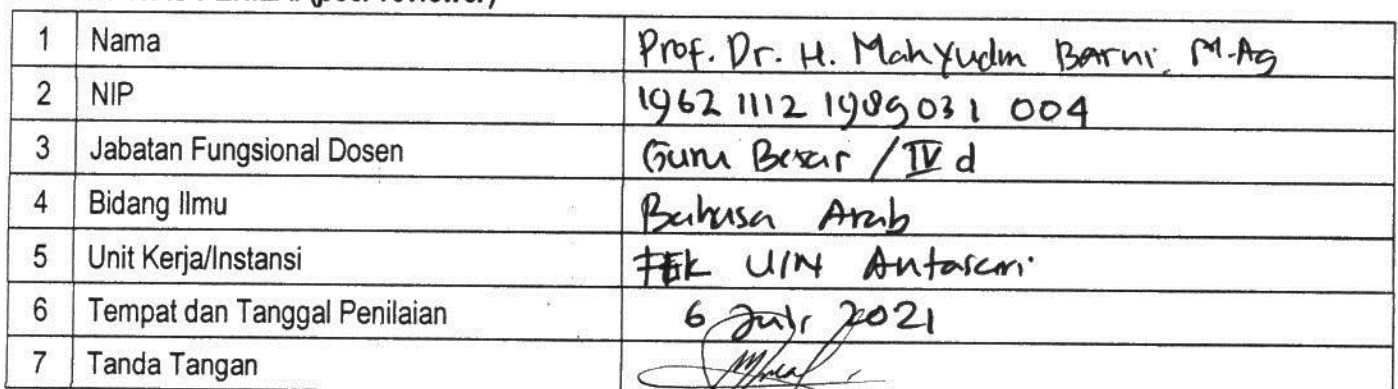 (peer reviewer)
1 Nama Prof. Dr. H. Mahyudin Barni, M.Ag
2 NIP 1962 1112 1989 03 1 004
3 Jabatan Fungsional Dosen Guru Besar / IV d
4 Bidang Ilmu Bahasa Arab
5 Unit Kerja/Instansi UIN Antasari
6 Tempat dan Tanggal Penilaian 6 Juli 2021
7 Tanda Tangan